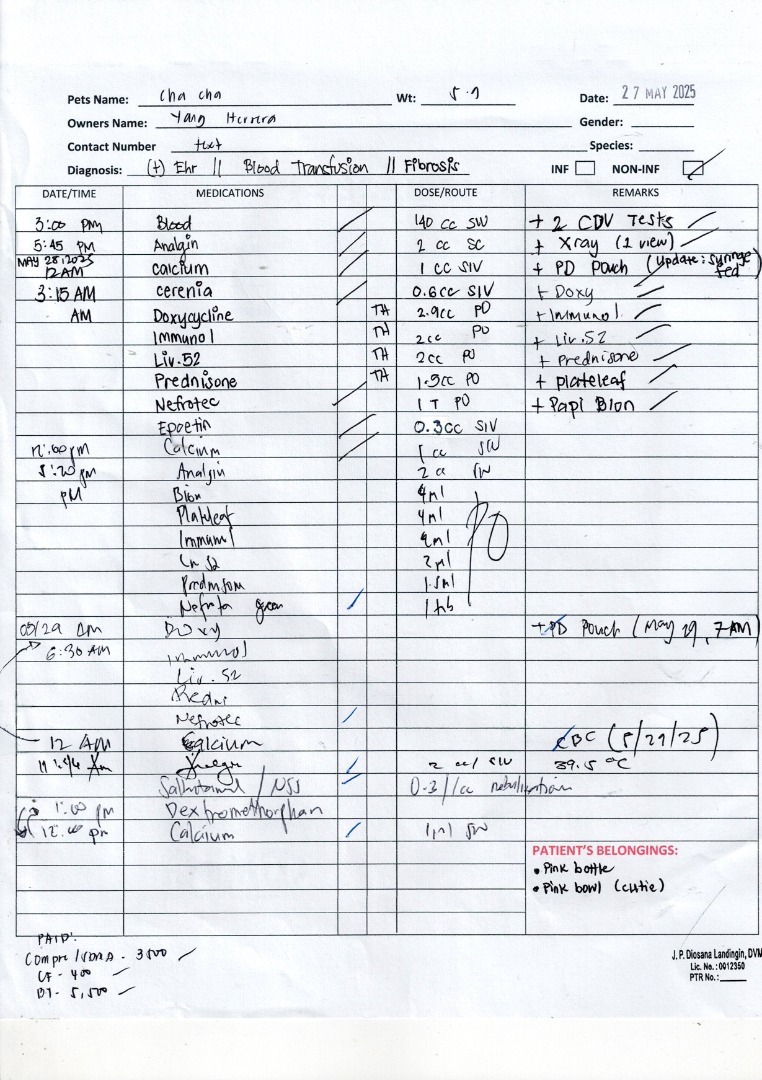 Pets Name: Cha cha Wt: 5.9 Date: 27 MAY 2025
Owners Name: Yang Herrera Gender:
Contact Number text Species:
Diagnosis: (+) Ehr || Blood Transfusion || Fibrosis INF NON-INF
DATE/TIME MEDICATIONS DOSE/ROUTE REMARKS
3:00 PM Blood 140 cc SIV + 2 CDV Tests
5:45 PM Analgin 2 cc SC + Xray (2 view)
MAY 28, 2025 12AM calcium 1 cc SIV + PD Pouch (Update: syringe fed)
3:15 AM cerenia 0.6cc SIV + Doxy
AM Doxycycline TH 2.9cc PO + Immunol
Immunol TH 2cc PO + Liv.52
Liv.52 TH 2cc PO + Prednisone
Prednisone TH 1.5cc PO + plateleaf
Nefrotec 1 T PO + Papi Bion
Epoetin 0.3cc SIV
12:00 pm Calcium 1 cc SIV
5:20 pm Analgin 2 cc SIV
PM Bion 4ml
Plateleaf 4ml PO
Immunol 4ml
Liv 52 2ml
Prednison 1.5ml
Nefrotec 1 tab
05/29 am Doxy + PD Pouch (May 29, 7AM)
6:30 AM Immunol
Liv.52
Predni
Nefrotec
12 AM Calcium CBC (5/29/25)
Analgin 2 cc/ SIV 39.5 °C
Salbutamol / NSS nebulization
1:00 pm Dextromethorphan
12:00 pm Calcium 1ml SIV
PATIENT'S BELONGINGS:
• Pink bottle
• Pink bowl (cutie)
PAID:
3500
CF - 400
BT - 5,500
J. P. Diosana Landingin, DVM
Lic. No.: 0012350
PTR No.: